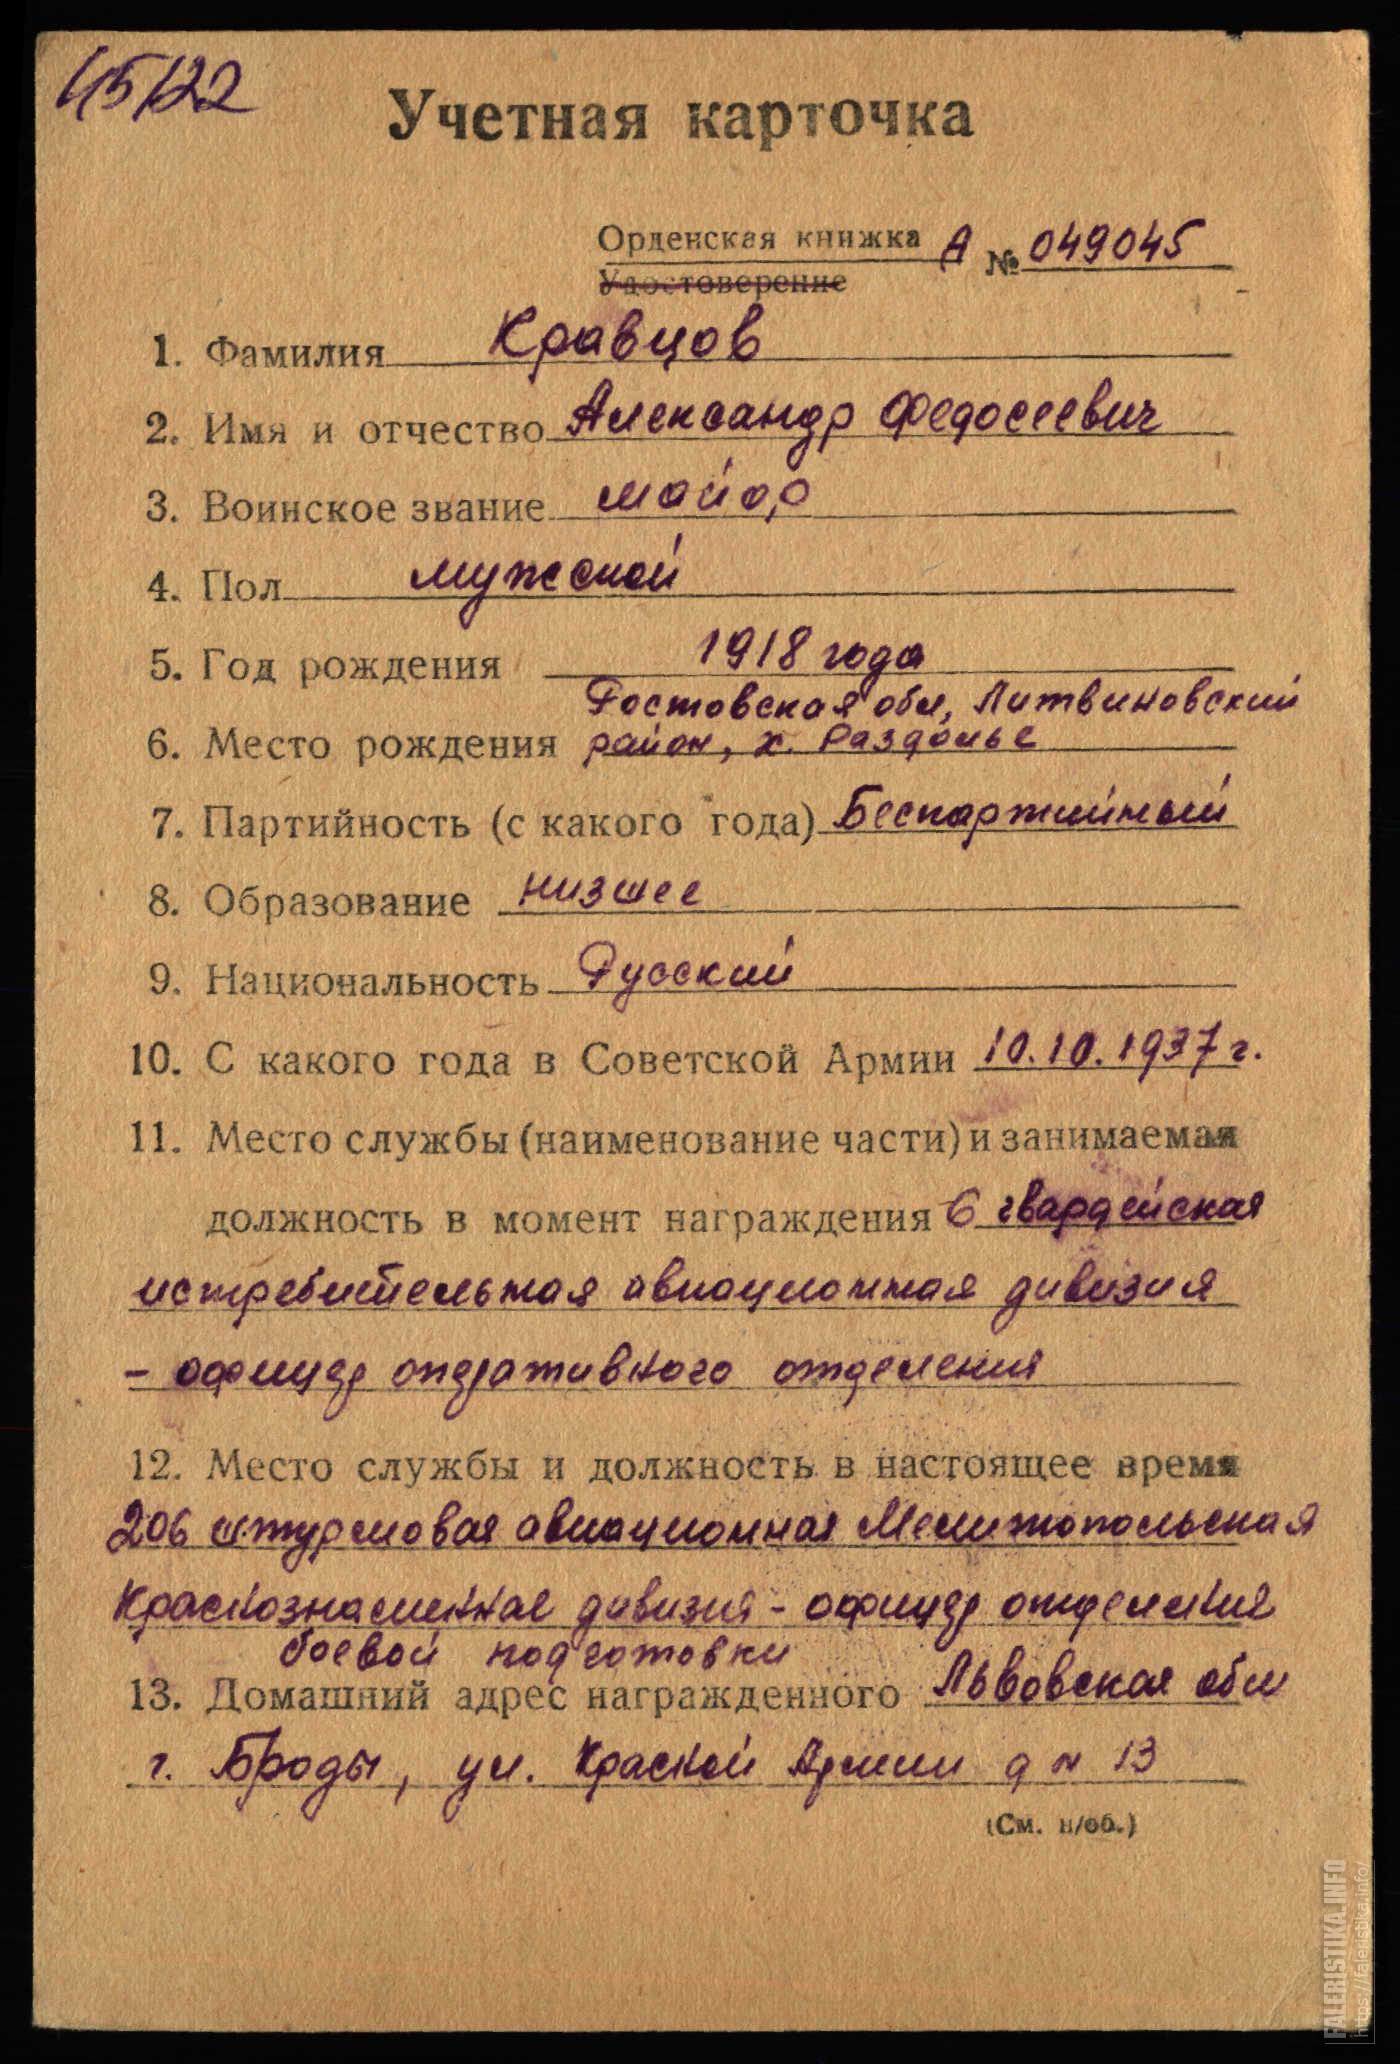 45122
Учетная карточка
Орденская книжка А № 049045
Удостоверение
1. Фамилия Кравцов
2. Имя и отчество Александр Федосеевич
3. Воинское звание майор
4. Пол мужской
5. Год рождения 1918 года
Ростовская обл, Литвиновский
6. Место рождения район, х. Раздолье
7. Партийность (с какого года) Беспартийный
8. Образование низшее
9. Национальность Русский
10. С какого года в Советской Армии 10.10.1937 г.
11. Место службы (наименование части) и занимаемая
должность в момент награждения 6 гвардейская
истребительная авиационная дивизия
- офицер оперативного отделения
12. Место службы и должность в настоящее время
206 штурмовая авиационная Мелитопольская
Краснознаменная дивизия - офицер отделения
боевой подготовки
13. Домашний адрес награжденного Львовская обл
г. Броды, ул. Красной Армии д н 13
(См. н/об.)
FALERISTIKA.INFO
https://faleristika.info/